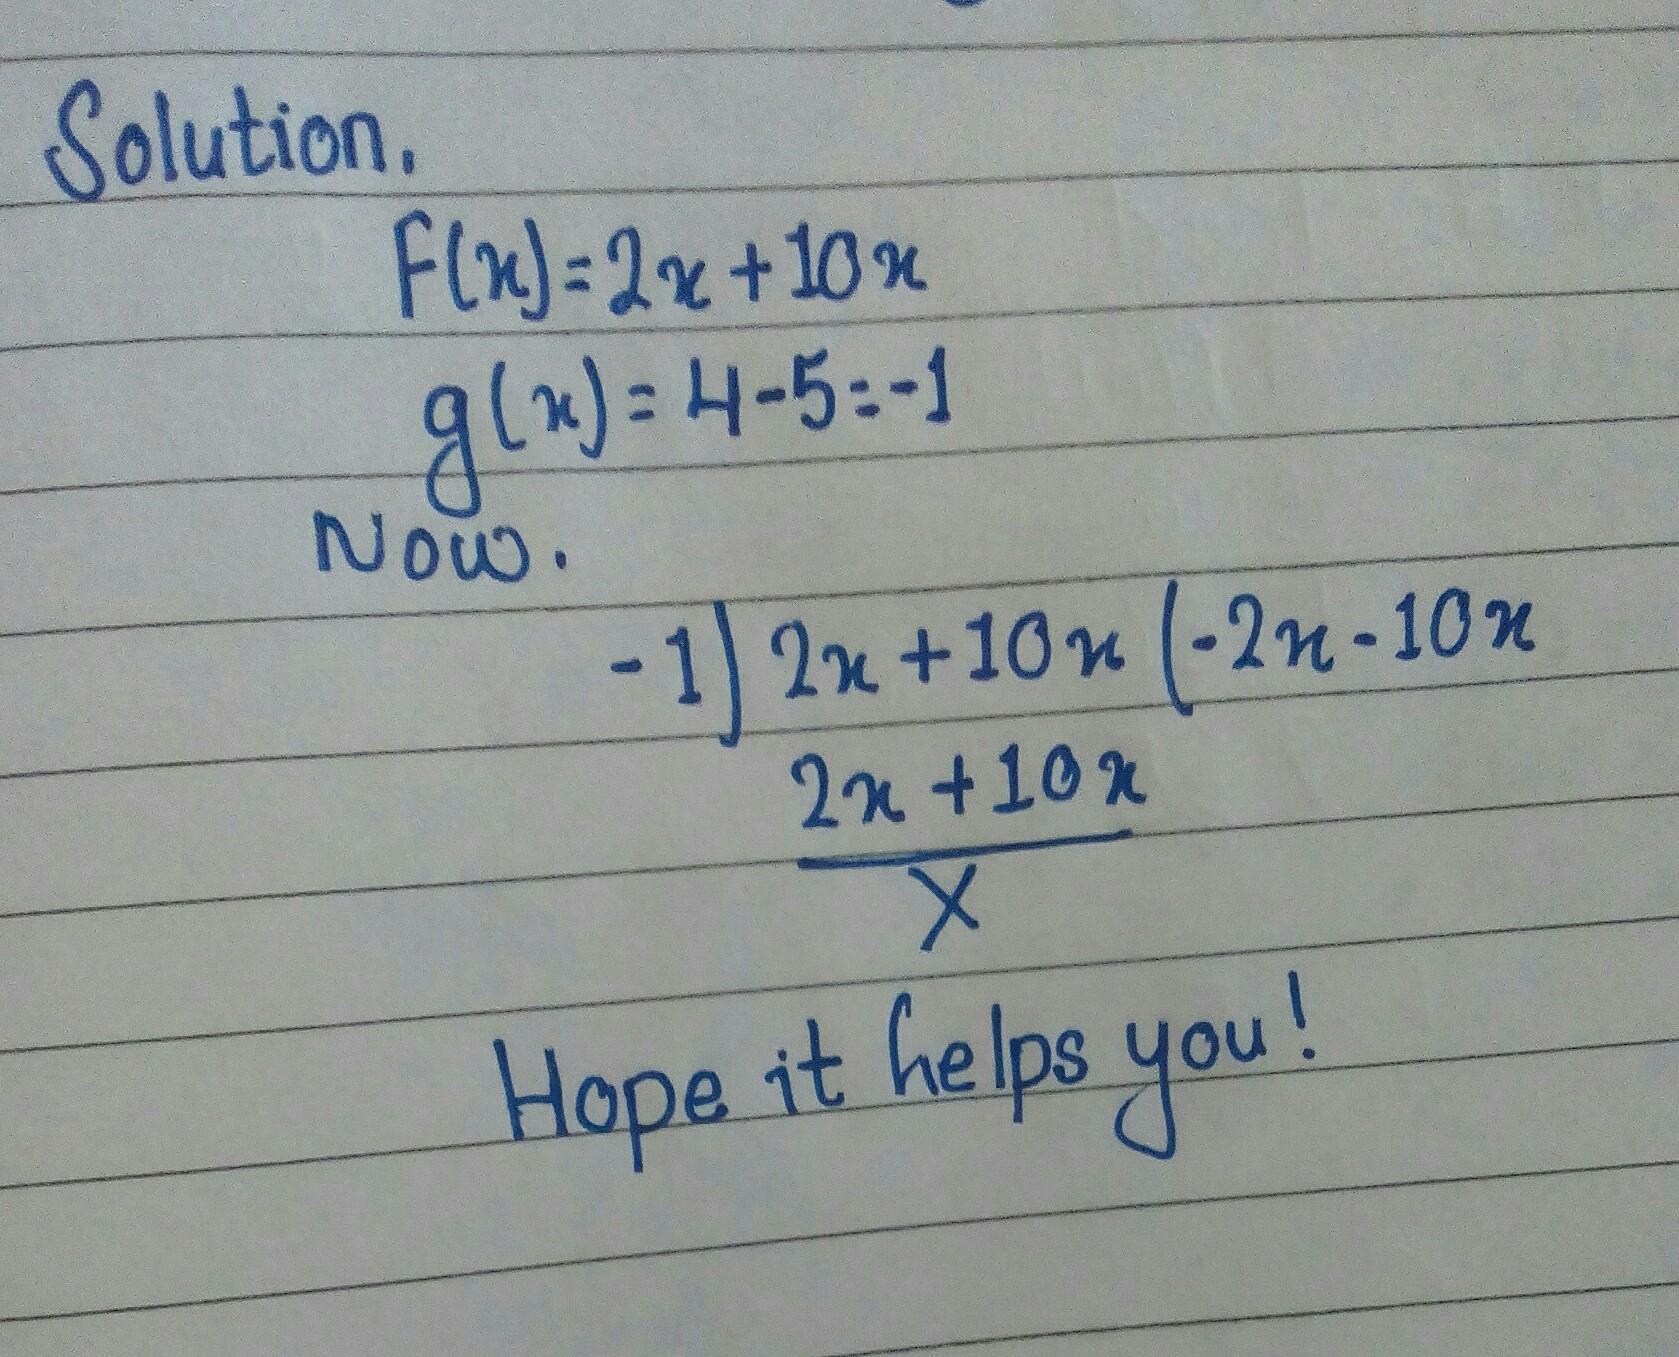 Solution.
F(x)=2x+10x
g(x)=4-5=-1
Now.
-1)2x+10x(-2x-10x
2x+10x
X
Hope it helps you!